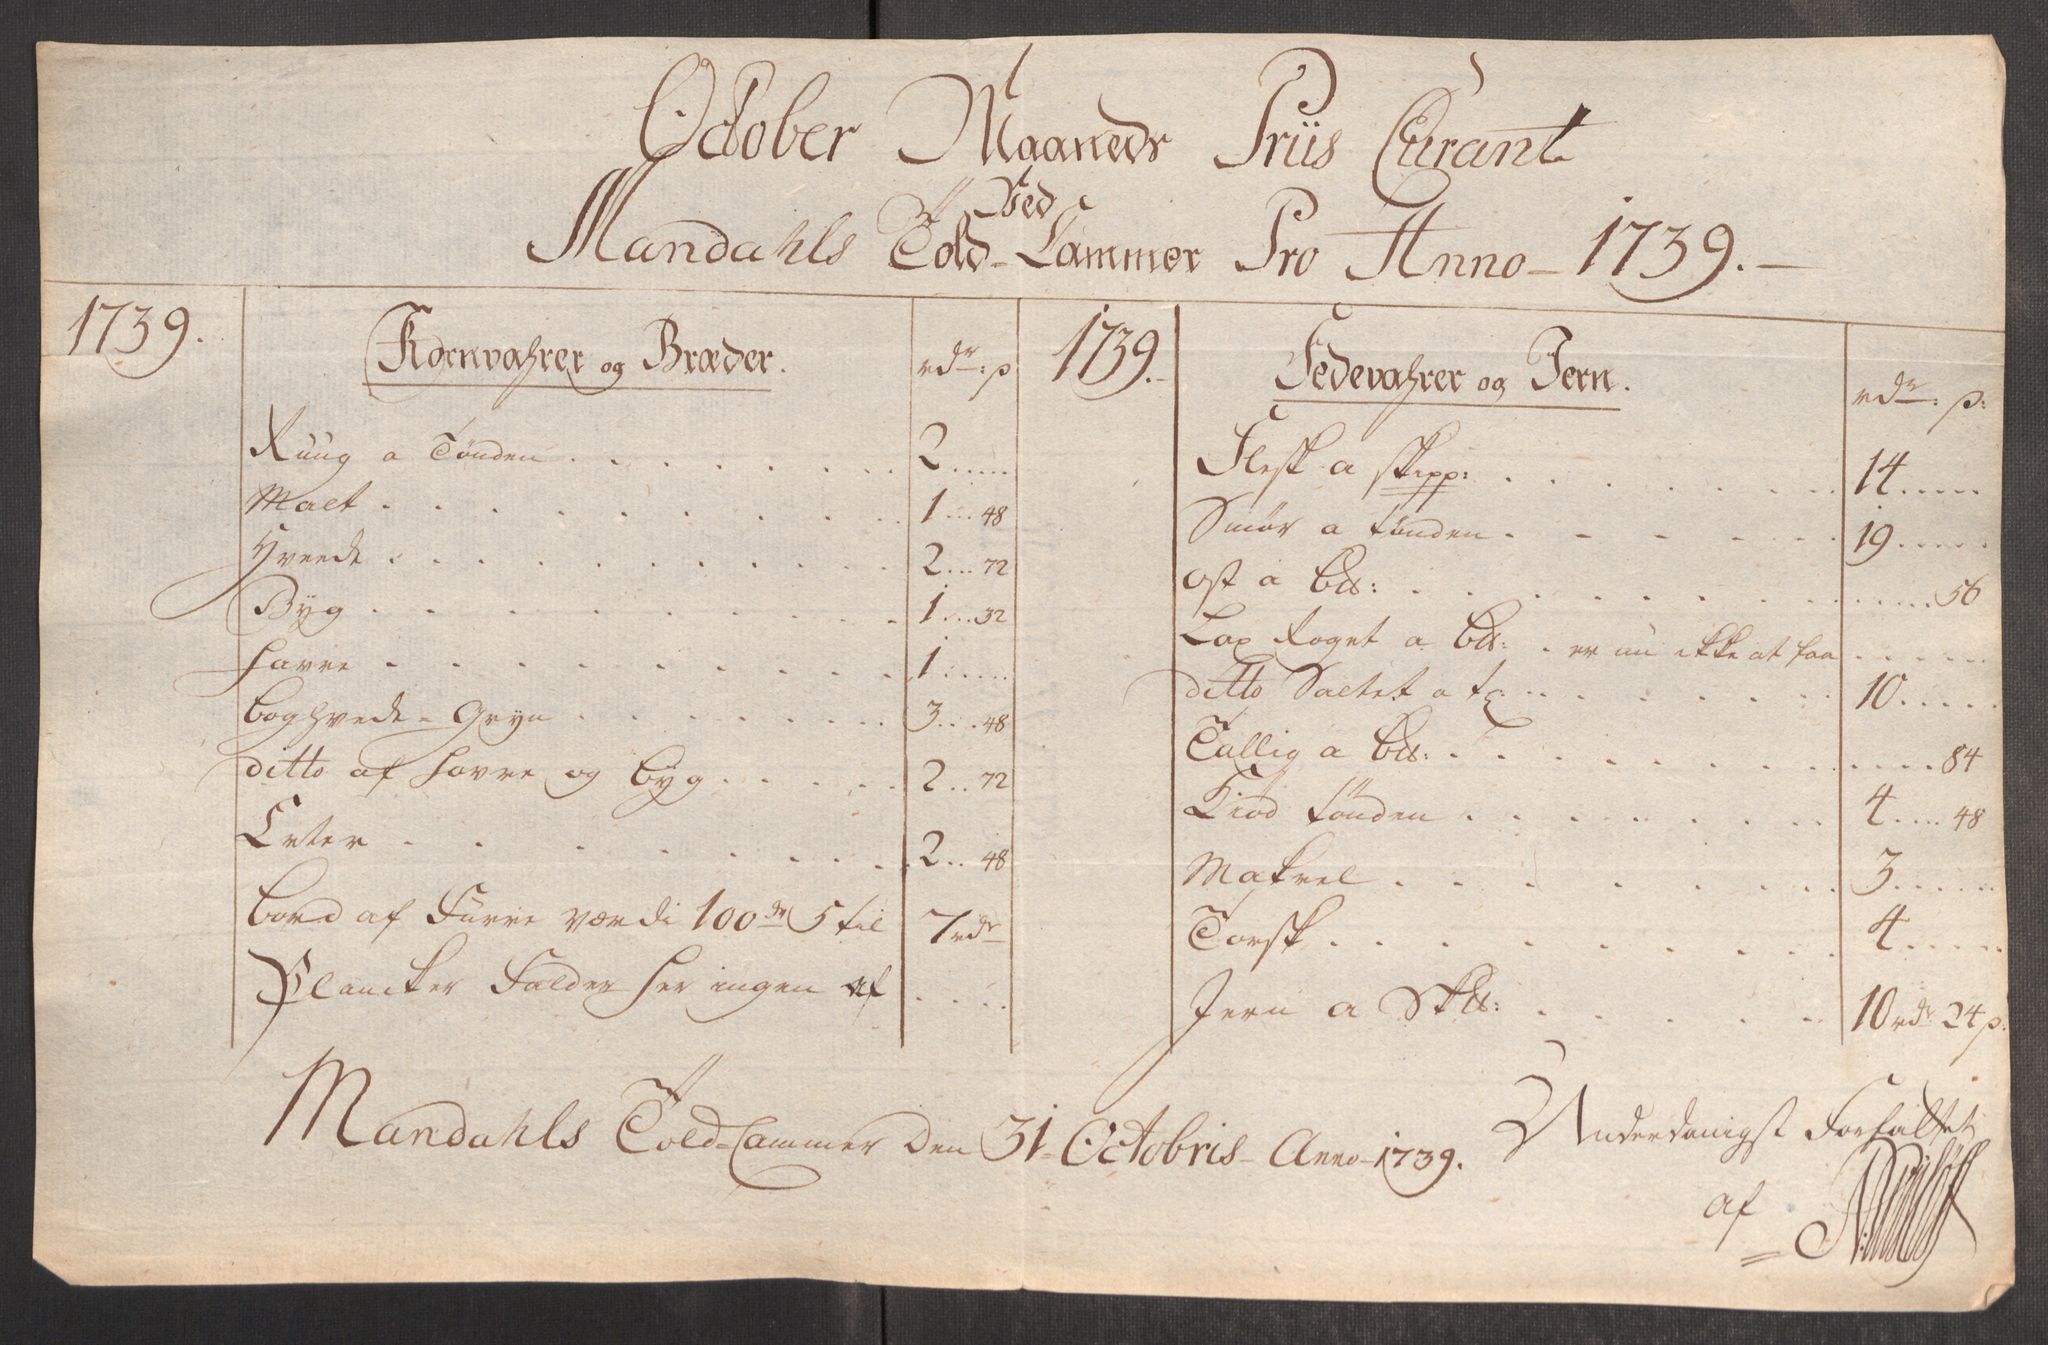 October Maaneds Priis Curant
Ved
Mandahls Told-Cammer Pro Anno-1739.-
1739.
Kornvahrer og Bræder. rdr: ß
Ruug a Tønden . . . . . . . 2.....
Malt . . . . . . . . . . 1...48
Hveede . . . . . . . . . . 2...72
Byg . . . . . . . . . . 1...32
Havre . . . . . . . . . . 1.....
boghvede-Gryn . . . . . . . 3...48
ditto af Havre og byg . . . . . 2..72
Erter . . . . . . . . 2..48
bord af Furre værdi 100 dr 5 til 7 rdr
Plancker Falder her ingen af . . . .
1739.-
Fedevahrer og Jern. rdr: ß:
Flesk a skpp: . . . . . . . . 14.....
Smør a tønden . . . . . . 19.....
ost a b℔: . . . . . . . . . .....56
Lax Røget a b℔: . er nu ikke at faa . . . . .
ditto Saltet a tć: . . . . . . . 10.....
Tallig a b℔: . . . . . . . . .....84
Kiød tønden . . . . . . . 4....48
Makrel . . . . . . . . 3......
Torsk . . . . . . . . . 4.....
Jern a Sk℔: . . . . . . 10 rdr 24 ß:
Mandahls Told-Cammer Den 31-Octobris-Anno-1739.
Underdanigst Forfattet
af